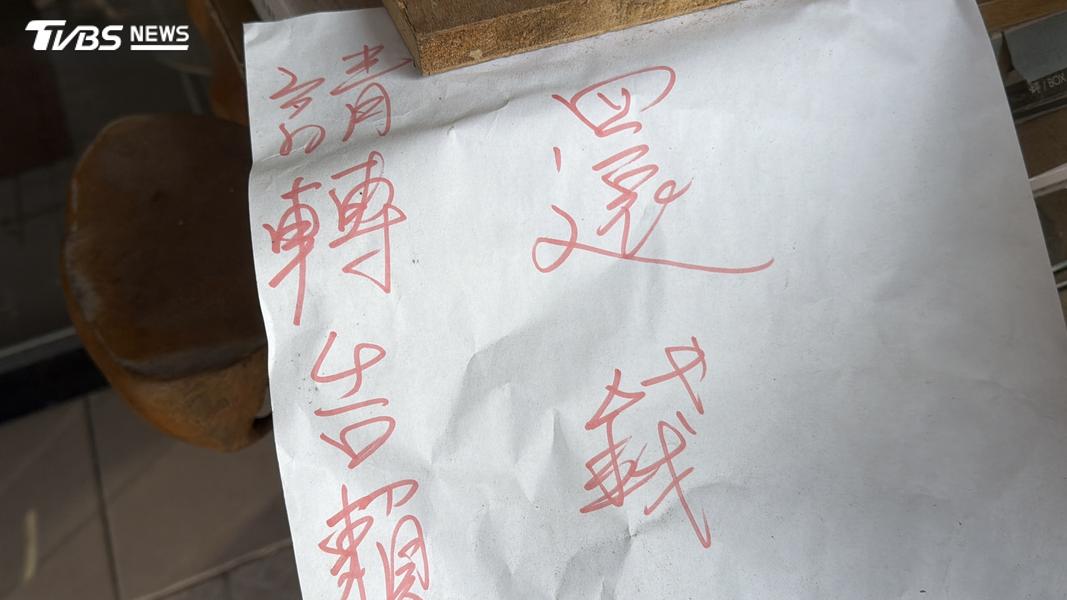 TVBS NEWS
請轉告賴
還錢
BOX